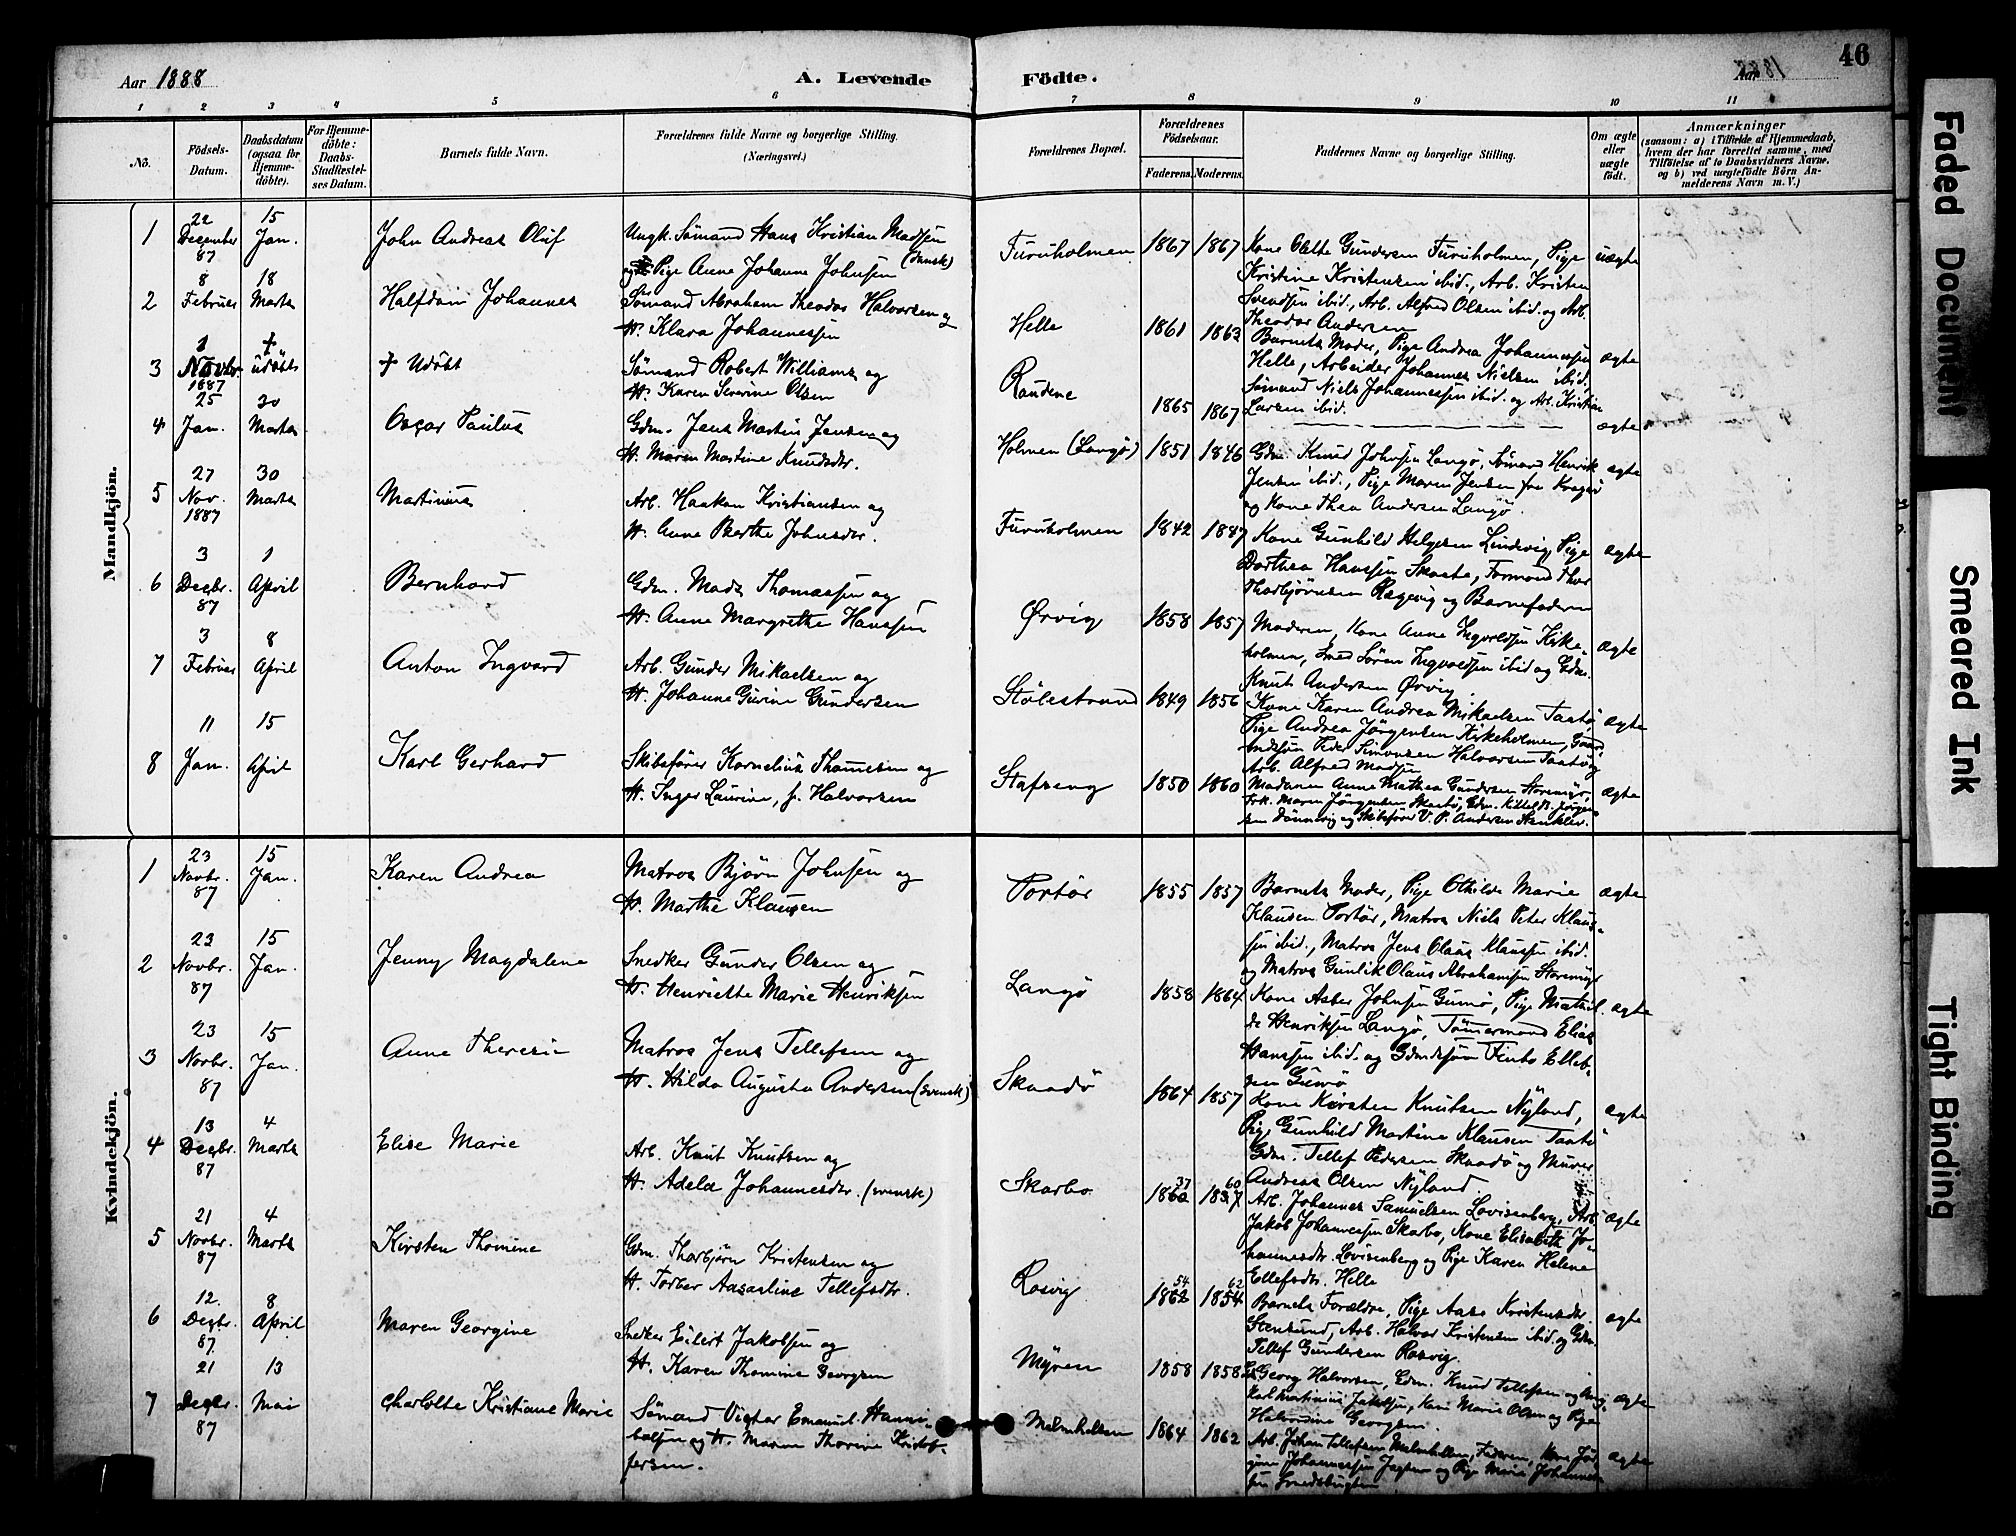 Aar 1888
A. Levende Födte.
46
1 2 3 4 5 6 7 8 9 10 11
No.
Födsels-Datum.
Daabsdatum (ogsaa for Hjemme-döbte).
For Hjemme-döbte: Daabs-Stadfæstel-ses Datum.
Barnets fulde Navn.
Forældrenes fulde Navne og borgerlige Stilling. (Næringsvei.)
Forældrenes Bopæl.
Forældrenes Födselsaar.
Faderens. Moderens.
Faddernes Navne og borgerlige Stilling.
Om ægte eller uægte födt.
Anmærkninger
(saasom: a) i Tilfælde af Hjemmedaab,
hvem der har forrettet samme, med
Tilföielse af to Daabsvidners Navne,
og b) ved uægtefödte Börn An-
melderens Navn m. V.)
Mandkjön.
1 22 December 87 15 Jan. John Andreas Oluf
Ungk. Sömand Hans Kristian Madsen (dansk)
og Pige Anne Johanne Johnsen
Furuholmen 1867 1867
Kone Gundersen Furuholmen, Pige
Kristine Kristensen ibid., Arb. Kristen
Svendsen ibid., Arb. Alfred Olsen ibid. og Arb.
Theodor Andersen
uægte
2 8 Februar 18 Marts Halfdan Johannes
Sömand Abraham Theodor Halvorsen og
H. Klara Johannessen
Helle 1861 1863
Barnets Moder, Pige Andrea Johannessen
Helle, Arbeider Johannes Nielsen ibid.
Sömand Niels Johannessen ibid. og Arb. Kristian
Larsen ibid.
ægte
3 1 Novbr. 1887 † udöbt † Udöbt
Sömand Robert Williams og
H. Karen Severine Olsen
Randene 1865 1867
ægte
4 25 Jan. 30 Marts Oscar Paulus
Gdm. Jens Martin Jensen og
H. Maren Martine Knudsdtr.
Holmen (Langö) 1851 1846
Gdm. Knud Johnsen Langö, Sömand Henrik
Jensen ibid., Pige Maren Jensen fra Kragerö
og Kone Thea Andersen Langö.
ægte
5 27 Nov. 1887 30 Marts Martinius
Arb. Haakon Kristiansen og
H. Anne Berthe Johnsdtr.
Furuholmen 1842 1847
Kone Gunhild Helgesen Lindvig, Pige
Dorthea Hanssen Skaate, Formand Thor
Thorbjörnsen og Barnefaderen
ægte
6 3 Decbr. 87 1 April Bernhard
Gdm. Mads Thomassen og
H. Anne Margrethe Hanssen
Ørvig 1858 1857
Moderen, Kone Anne Ingvoldsen Kirke-
holmen, Smed Sören Ingvoldsen ibid og Gdm.
Knut Andersen Ørvig.
ægte
7 3 Februar 8 April Anton Ingvard
Arb. Gunder Mikaelsen og
H. Johanne Gurine Gundersen
Stölestrand 1849 1856
Kone Karen Andrea Mikaelsen Taatö
Pige Andrea Jörgensen Kirkeholmen, Gaard-
Peder Simonsen Halvorsen Taatö og
Arb. Alfred Madsen
ægte
8 11 Jan. 15 April Karl Gerhard
Skibsförer Kornelius Thomesen og
H. Inger Laurine, f. Halvorsen
Stafseng 1850 1860
Moderen Anne Mathea Gundersen Storemyr,
Frk. Maren Jörgensen Skaatö, Gdm. Kittel N. Jörgen-
sen Dönnevig og Skibsförer V. P. Andersen Stenklev.
ægte
Kvindekjön.
1 23 Novbr. 87 15 Jan. Karen Andrea
Matros Bjørn Johnsen og
H. Marthe Klausen
Portör 1855 1857
Barnets Moder, Pige Othilde Marie
Klausen Portör, Matros Niels Peter Klaus-
sen ibid., Matros Jens Olaus Klaussen ibid.
og Matros Gunlik Olaus Abrahamsen Storemyr
ægte
2 23 Novbr. 87 15 Jan. Jenny Magdalene
Snedker Gunder Olsen og
H. Henriette Marie Henriksen
Langö 1858 1864
Kone Asber Johnsen Gumö, Pige Mathil-
de Henriksen Langö, Tömermand Elias
Hanssen ibid. og Gdmdssön Tinbo Ellef-
sen Gumö
ægte
3 23 Novbr. 87 15 Jan. Anne Theresie
Matros Jens Tellefsen og
H. Hilda Augusta Andersen (svensk)
Skaadö 1864 1857
Kone Kirsten Knutsen Nyland,
Pige Gunhild Martine Klausen Taatö
Gdm. Tellef Pedersen Skaadö og Murer
Andreas Olsen Nyland
ægte
4 13 Decbr. 87 4 Marts Elise Marie
Arb. Knut Knutsen og
H. Adela Johannesdtr. (svensk)
Skarbo 37 1860 60 1837
Arb. Johannes Samuelsen Lovisenberg, Arb.
Jakob Johannessen Skarbo, Kone Elisabeth Jo-
hannesdtr. Lovisenberg og Pige Karen Helene
Ellefsdtr. Helle
ægte
5 21 Novbr. 87 4 Marts Kirsten Thomine
Gdm. Thorbjörn Kristensen og
H. Torbor Aasaaline Tellefsdtr.
Rosvig 54 1862 62 1854
Barnets Forældre, Pige Aase Kristensdtr.
Stensund, Arb. Halvor Kristensen ibid. og Gdm.
Tellef Gundersen Rosvig.
ægte
6 12. Decbr. 87. 8 April Maren Georgine
Snedker Eilert Jakobsen og
H. Karen Thomine Georgsen
Myren 1858 1858
Georg Halvorsen, Gdm. Knud Tellefsen og Ung.
Karl Martinius Jakobsen, Kone Marie Olsen og Pige
Halvordine Georgsen.
ægte
7 21 Decbr. 87 13 Mai Charlotte Kristiane Marie
Sömand Victor Emanuel Hanni-
balsen og H. Maren Thorine Kristof-
fersen.
Malmhellen 1864 1862
Arb. Johan Tellefsen Malmhellen, Faderen, Kone Jör-
gine Johannessen og Pige Marie Johannes-
sen Smedsbugten
ægte
Faded Document
Smeared Ink
Tight Binding